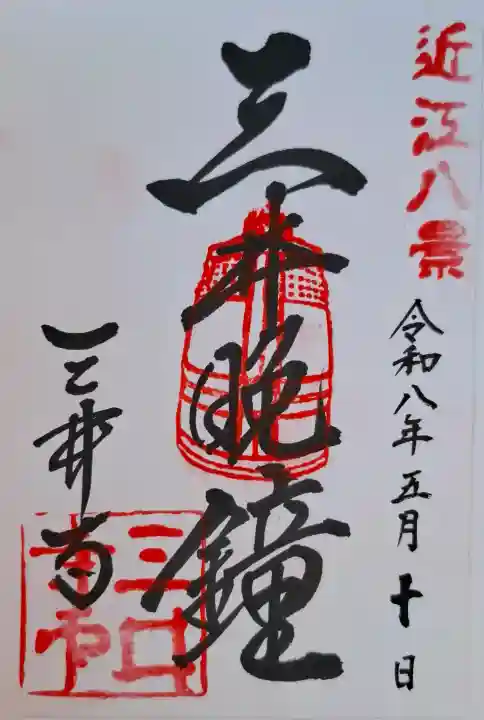 近江八景
令和八年五月十日
三井晩鐘
三井寺